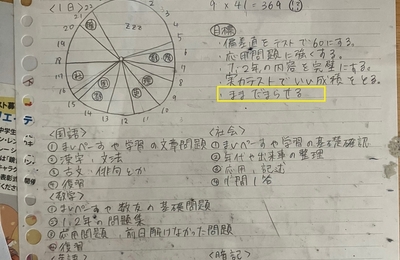 <1日>
9 × 41 = 369
23
22
21
20
19
18
17
16
15
14
13
12
11
10
9
8
7
6
5
4
3
2
zzz
目標
・偏差値をテストで60にする。
・応用問題に強くする。
・1,2年の内容を完璧にする。
・実力テストでいい成績をとる。
・ままだまらせる
<国語>
① まいぺーすや学習の文章問題
② 漢字、文法
③ 古文・俳句とか
④ 復習
<社会>
① まいぺーすや学習の基礎確認
② 年代や出来事の整理
③ 応用、記述
④ 一問一答
<数学>
① まいぺーすや教友の基礎問題
② 1,2年の問題集
③ 応用問題、前日解けなかった問題
④ 復習
<英語>
<暗記>